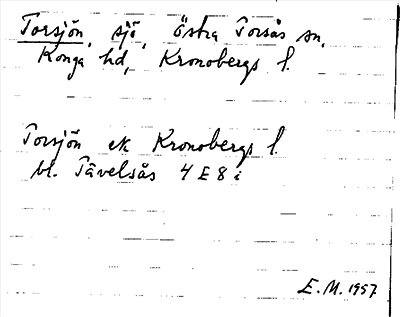 Torsjön, sjö, Östra Torsås sn,
Konga hd, Kronobergs l.
Torsjön ek Kronobergs l.
bl. Tävelsås 4 E 8 i
E. M. 1957